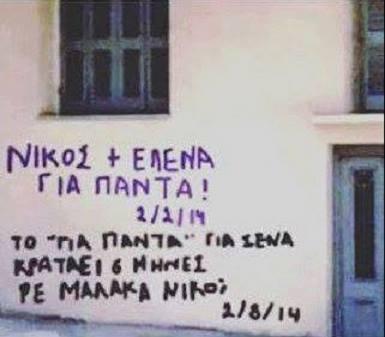 ΝΙΚΟΣ + ΕΛΕΝΑ
ΓΙΑ ΠΑΝΤΑ!
2/2/14
ΤΟ "ΓΙΑ ΠΑΝΤΑ" ΓΙΑ ΣΕΝΑ
ΚΡΑΤΑΕΙ 6 ΜΗΝΕΣ
ΡΕ ΜΑΛΑΚΑ ΝΙΚΟ;
2/8/14